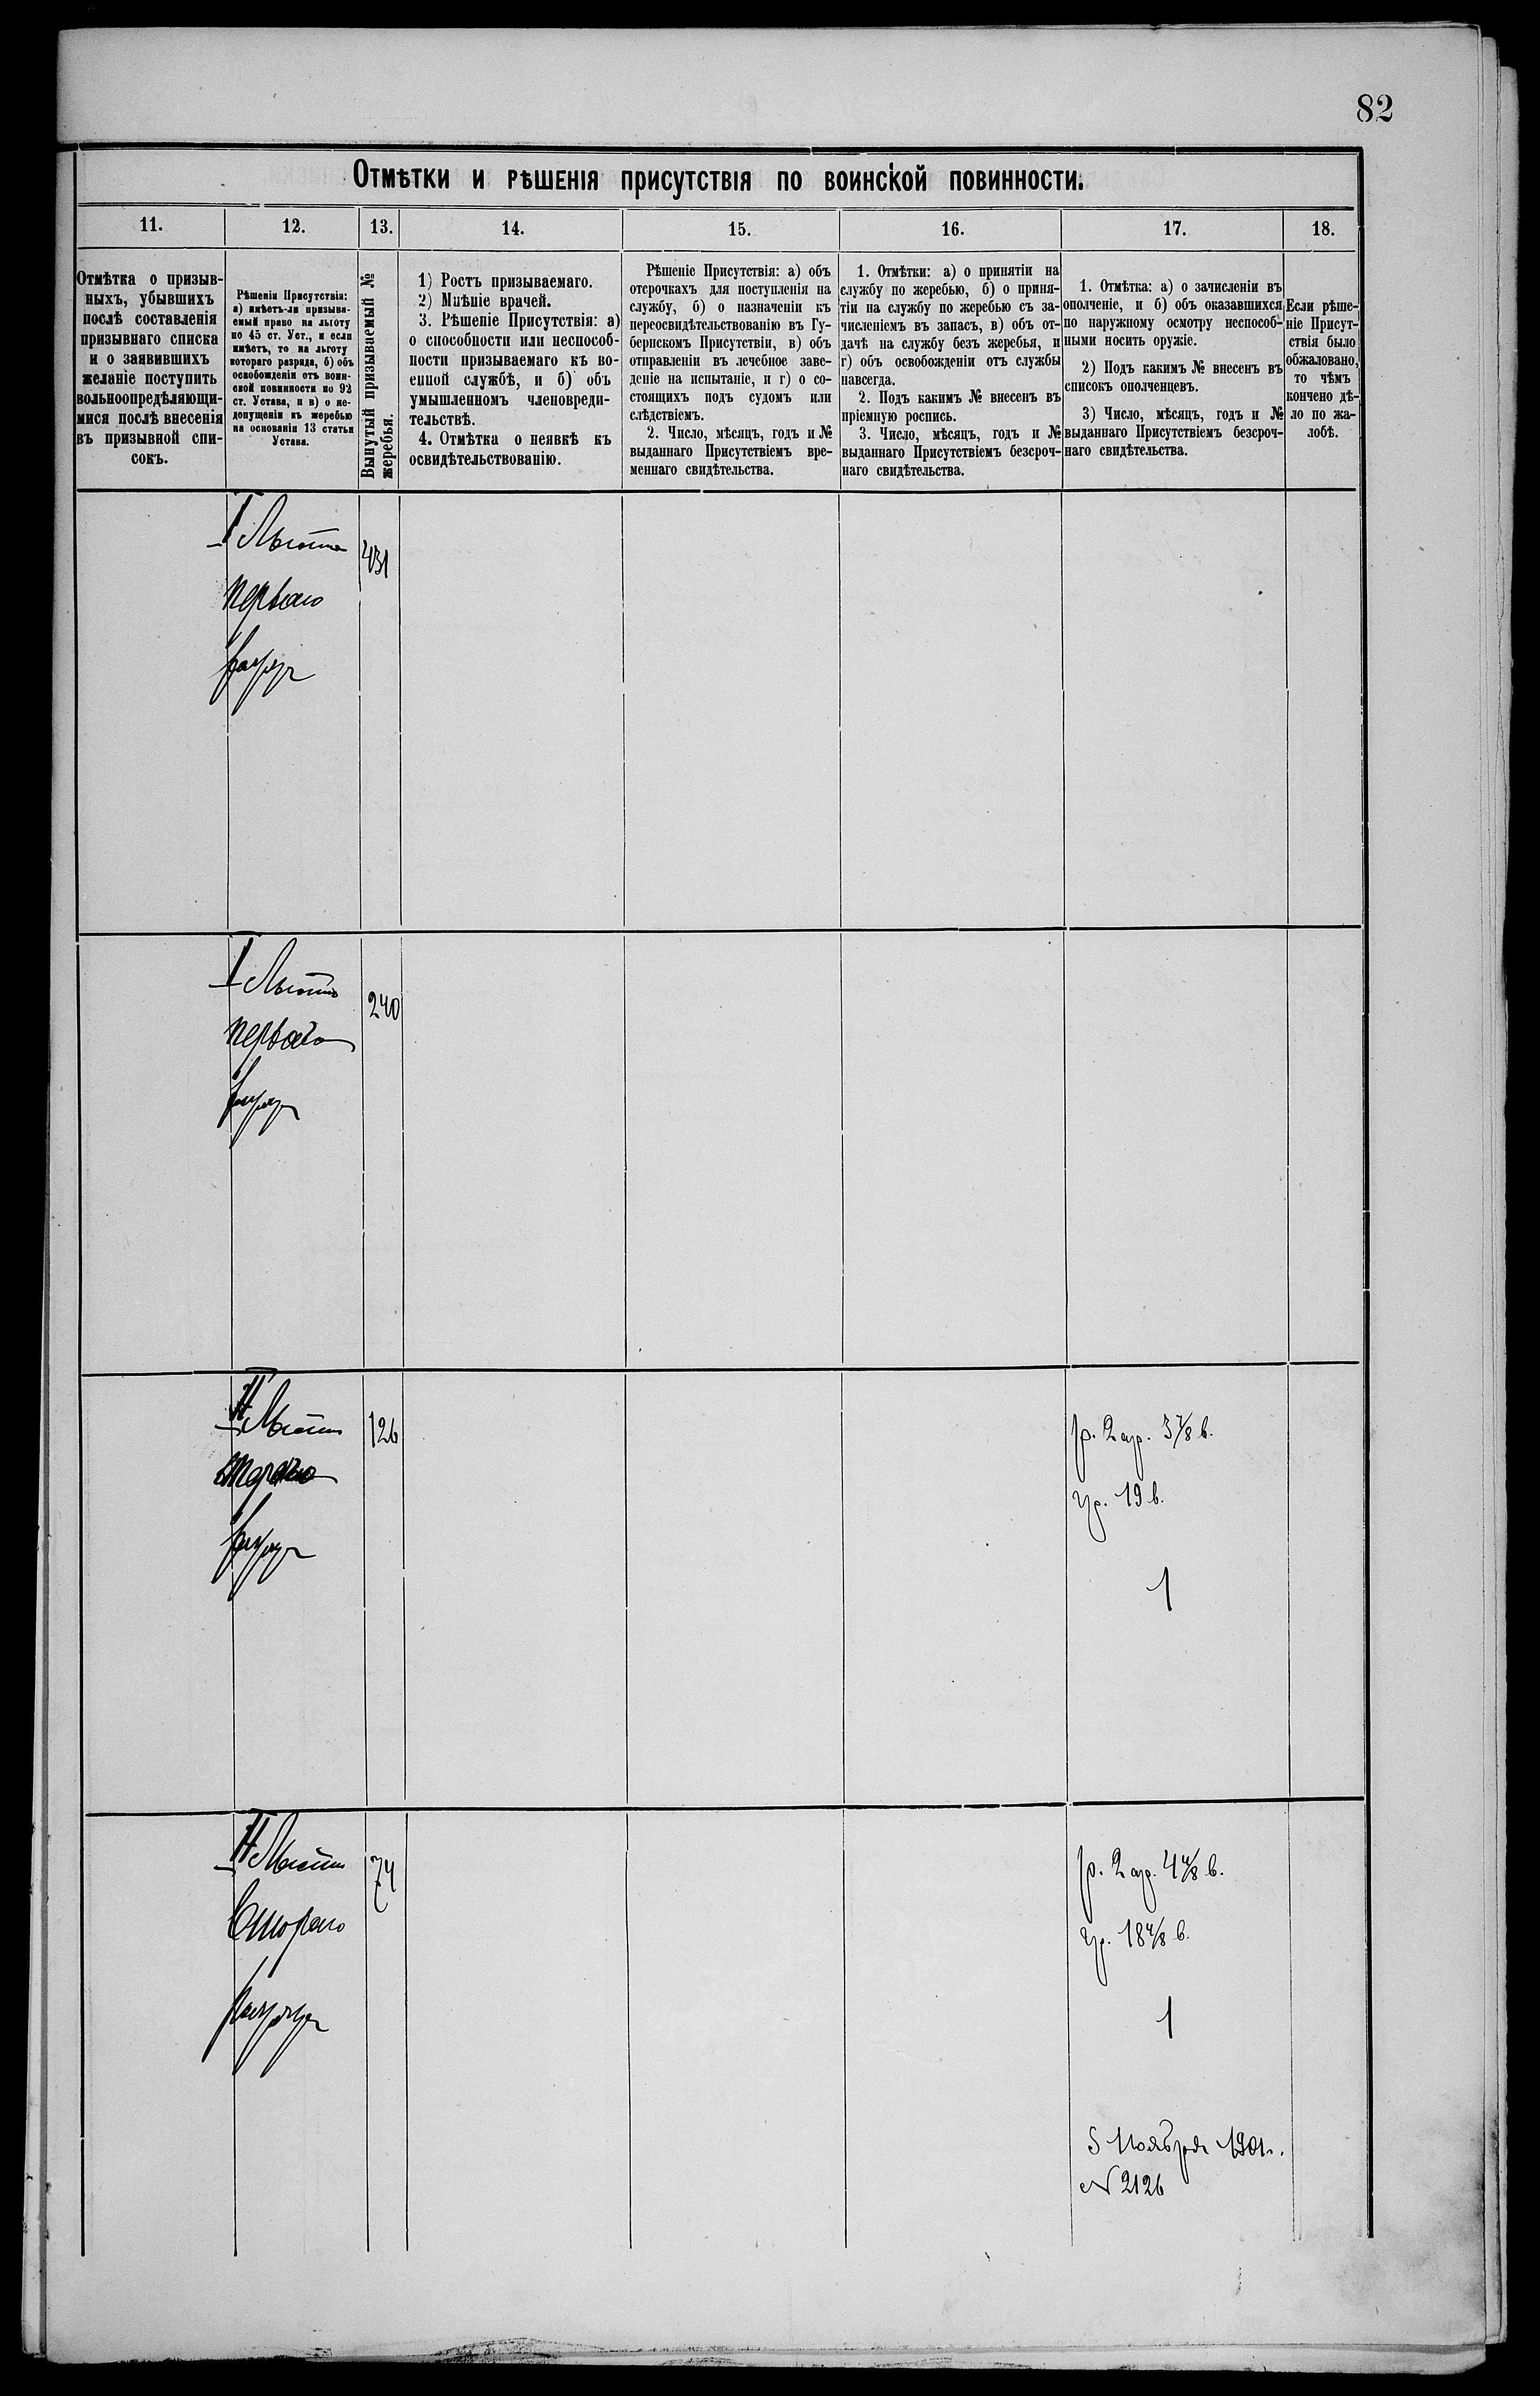 82
Отмѣтки и рѣшенія присутствія по воинской повинности.
11.
12.
13.
14.
15.
16.
17.
18.
Отмѣтка о призыв-
ныхъ, убывшихъ
послѣ составленія
призывнаго списка
и о заявившихъ
желаніе поступить
вольноопредѣляющи-
мися послѣ внесенія
въ призывной спи-
сокъ.
Рѣшенія Присутствія:
а) имѣетъ-ли призыва-
емый право на льготу
по 45 ст. Уст., и если
имѣетъ, то на льготу
котораго разряда, б) объ
освобожденіи отъ воин-
ской повинности по 92
ст. Устава, и в) о не-
допущеніи къ жеребью
на основаніи 13 статьи
Устава.
Вынутый призываемый №
жеребья.
1) Ростъ призываемаго.
2) Мнѣніе врачей.
3. Рѣшеніе Присутствія: а)
о способности или неспособ-
ности призываемаго къ во-
енной службѣ, и б) объ
умышленномъ членовреди-
тельствѣ.
4. Отмѣтка о неявкѣ къ
освидѣтельствованію.
Рѣшеніе Присутствія: а) объ
отсрочкахъ для поступленія на
службу, б) о назначеніи къ
переосвидѣтельствованію въ Гу-
бернскомъ Присутствіи, в) объ
отправленіи въ лечебное заве-
деніе на испытаніе, и г) о со-
стоящихъ подъ судомъ или
слѣдствіемъ.
2. Число, мѣсяцъ, годъ и №
выданнаго Присутствіемъ вре-
меннаго свидѣтельства.
1. Отмѣтки: а) о принятіи на
службу по жеребью, б) о приня-
тіи на службу по жеребью съ за-
численіемъ въ запасъ, в) объ от-
дачѣ на службу безъ жеребья, и
г) объ освобожденіи отъ службы
навсегда.
2. Подъ какимъ № внесенъ въ
пріемную роспись.
3. Число, мѣсяцъ, годъ и №
выданнаго Присутствіемъ безсроч-
наго свидѣтельства.
1. Отмѣтка: а) о зачисленіи въ
ополченіе, и б) объ оказавшихся
по наружному осмотру неспособ-
ными носить оружіе.
2) Подъ какимъ № внесенъ въ
списокъ ополченцевъ.
3) Число, мѣсяцъ, годъ и №
выданнаго Присутствіемъ безсроч-
наго свидѣтельства.
Если рѣше-
ніе Присут-
ствія было
обжаловано,
то чѣмъ
кончено дѣ-
ло по жа-
лобѣ.
I Льгота
431
перваго
разряд
I Льгота
240
перваго
разряд
II Льгота
126
втораго
разряд
р. 2 ар. 3 7/8 в.
гр. 19 в.
1
II Льгота
74
Втораго
разряда
р. 2 ар. 4 4/8 в.
гр. 18 4/8 в.
1
5 Ноября 1901 г.
№ 2126